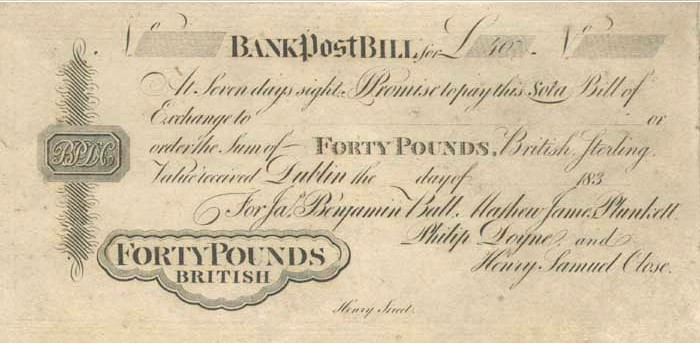 No BANK Post BILL for £ 40. No
At Seven days sight, I Promise to pay this Sola Bill of
Exchange to or
order the Sum of FORTY POUNDS, British Sterling.
Value received Dublin the day of 183
BPDC
For Jas. Benjamin Ball, Mathew James Plunkett
Philip Doyne, and
Henry Samuel Close.
FORTY POUNDS
BRITISH
Henry Street.